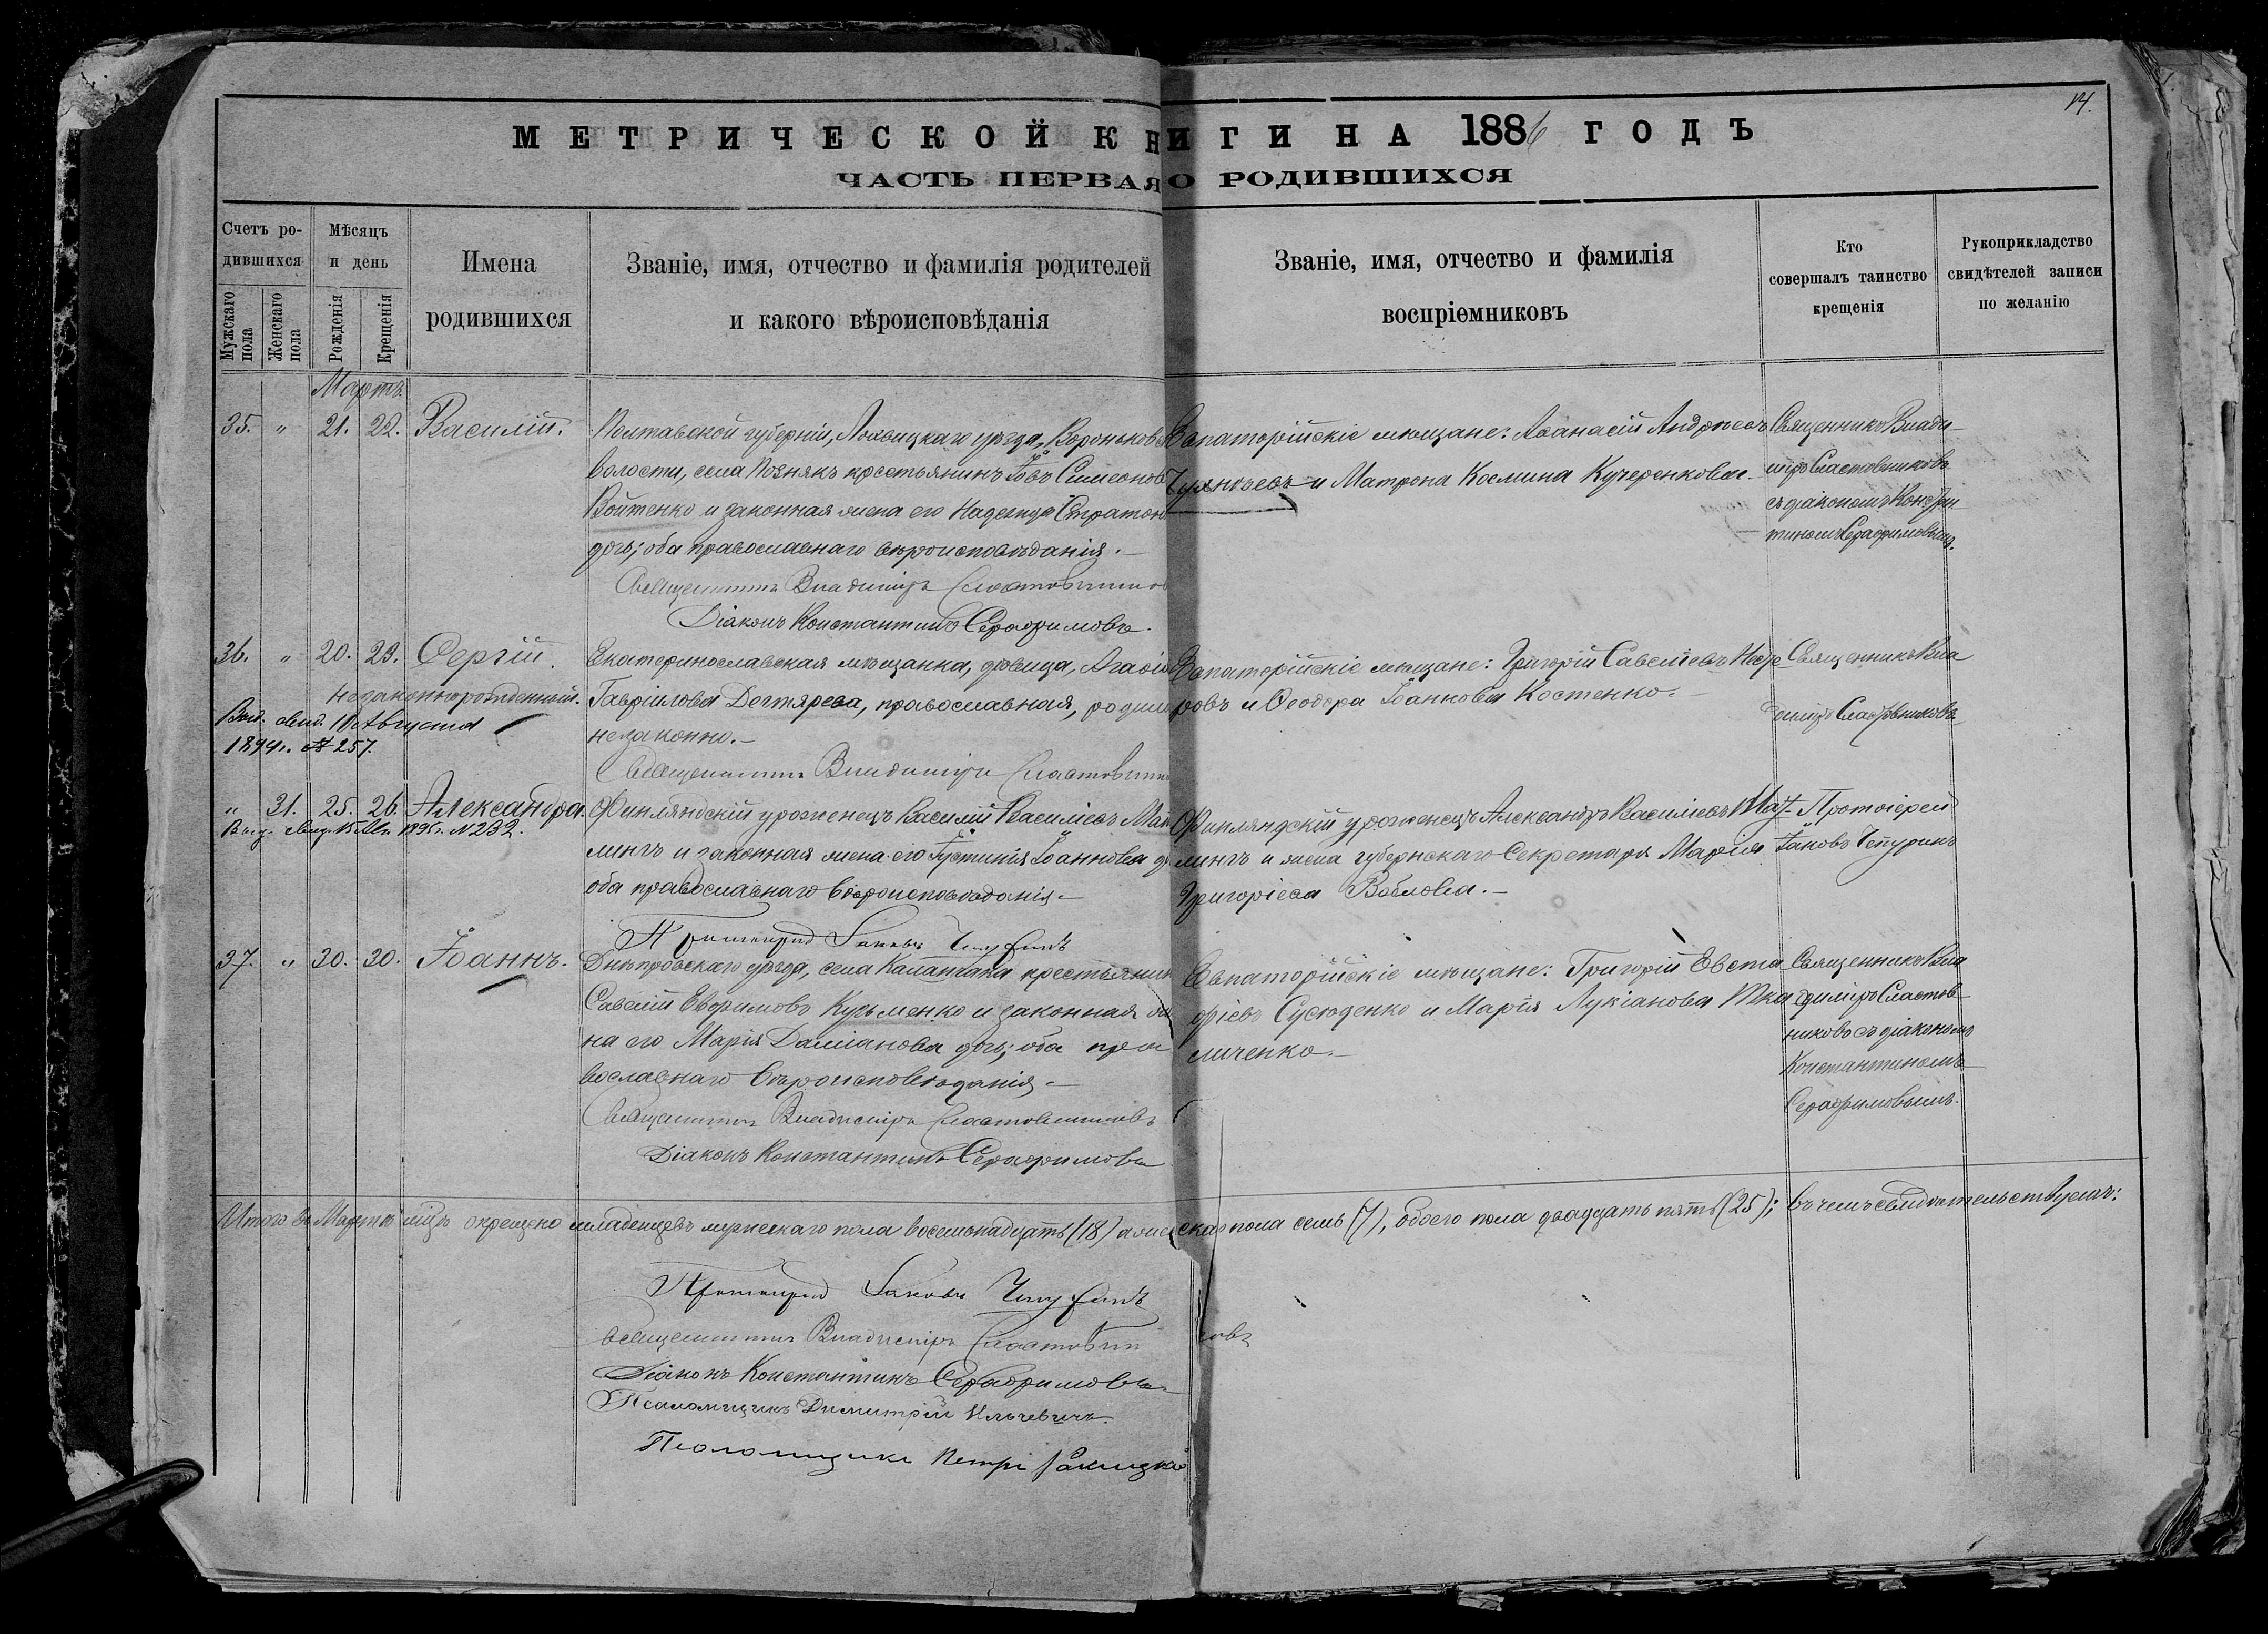 14.
МЕТРИЧЕСКОЙ КНИГИ НА 1886 ГОДЪ
ЧАСТЬ ПЕРВАЯ О РОДИВШИХСЯ
Счетъ ро-
дившихся
Мужскаго пола
Женскаго пола
Мѣсяцъ
и день
Рожденія
Крещенія
Имена
родившихся
Званіе, имя, отчество и фамилія родителей
и какого вѣроисповѣданія
Званіе, имя, отчество и фамилія
воспріемниковъ
Кто
совершалъ таинство
крещенія
Рукоприкладство
свидѣтелей записи
по желанію
Мартъ
35. " 21. 22. Василій.
Полтавской губерніи, Лохвицкаго уѣзда, Вороньков
волости, села Познякъ крестьянинъ Симеонов
Войтенко и законная жена его Надежда Стратон
дочь; оба православнаго вѣроисповѣданія.–
Священникъ Владиміръ Сластовников
Діаконъ Константинъ Серафимовъ.
Евпаторійскіе мѣщане: Аѳанасій Андреевъ
и Матрона Космина Кучеренкова.
Священникъ Влади-
міръ Сластовниковъ
съ діакономъ Констан
тиномъ Серафимовымъ.
36. " 20. 23. Сергій.
незаконнорожденный.
Выд. свид. 10 Августа
1894 г. № 257.
Екатеринославская мѣщанка, дѣвица, Агаѳія
Гавріилова Дегтярева, православная, родила
незаконно.–
Священникъ Владиміръ Сластовник
Евпаторійскіе мѣщане: Григорій Савеліевъ
ровъ и Ѳеодора Іоаннова Костенко.–
Священникъ Вла
диміръ Сластовниковъ
" 31. 25. 26. Александра.
Выд. свид. 1895 г. N 232.
Финляндскій уроженецъ Василій Василіевъ Мат
лингъ и законная жена его Іустинія Іоаннова д
оба православнаго вѣроисповѣданія–
Протоіерей Іаковъ Чепуринъ
Финляндскій уроженецъ Александръ Василіевъ Мат-
лингъ и жена губернскаго Секретаря Марія
Григоріева
Протоіерей
Іаковъ Чепуринъ
37. " 30. 30. Іоаннъ.
Днѣпровскаго уѣзда, села Каланчака крестьянин
Савелій Евфимовъ Кузьменко и законная же
на его Марія Даміанова дочь; оба пра
вославнаго вѣроисповѣданія–
Священникъ Владиміръ Сластовниковъ
Діаконъ Константинъ Серафимовъ
Евпаторійскіе мѣщане: Григорій Евста
фіевъ и Марія Лукіанова Тка
личенко.–
Священникъ Вла
диміръ Сластов-
никовъ съ діакономъ
Константиномъ
Серафимовымъ.
Итого въ Мартѣ мцѣ окрещено младенцевъ мужескаго пола восемьнадцать (18) а женскаго пола семь (7), обоего пола двадцать пять (25); въ чемъ свидѣтельствуемъ:
Протоіерей Іаковъ Чепуринъ
Священникъ Владиміръ Сластовниковъ
Діаконъ Константинъ Серафимовъ
Псаломщикъ Димитрій Ильчевичъ.
Псаломщикъ Петръ